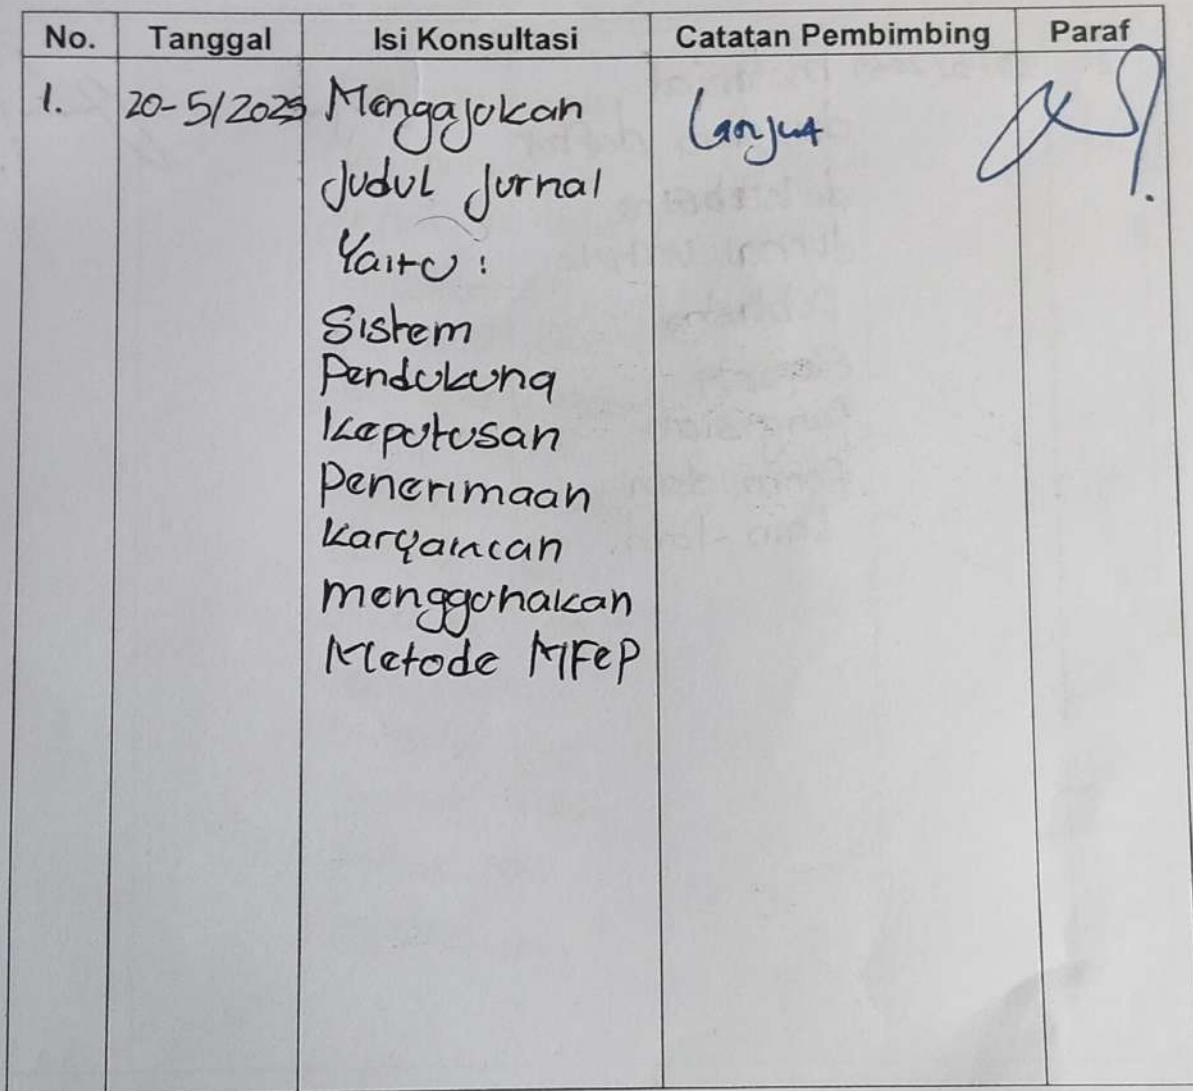 No. Tanggal Isi Konsultasi Catatan Pembimbing Paraf
1. 20-5/2025 Mengajukan Lanjut
Judul Jurnal
Yaitu :
Sistem
Pendukung
Keputusan
Penerimaan
Karyawan
menggunakan
Metode MFEP